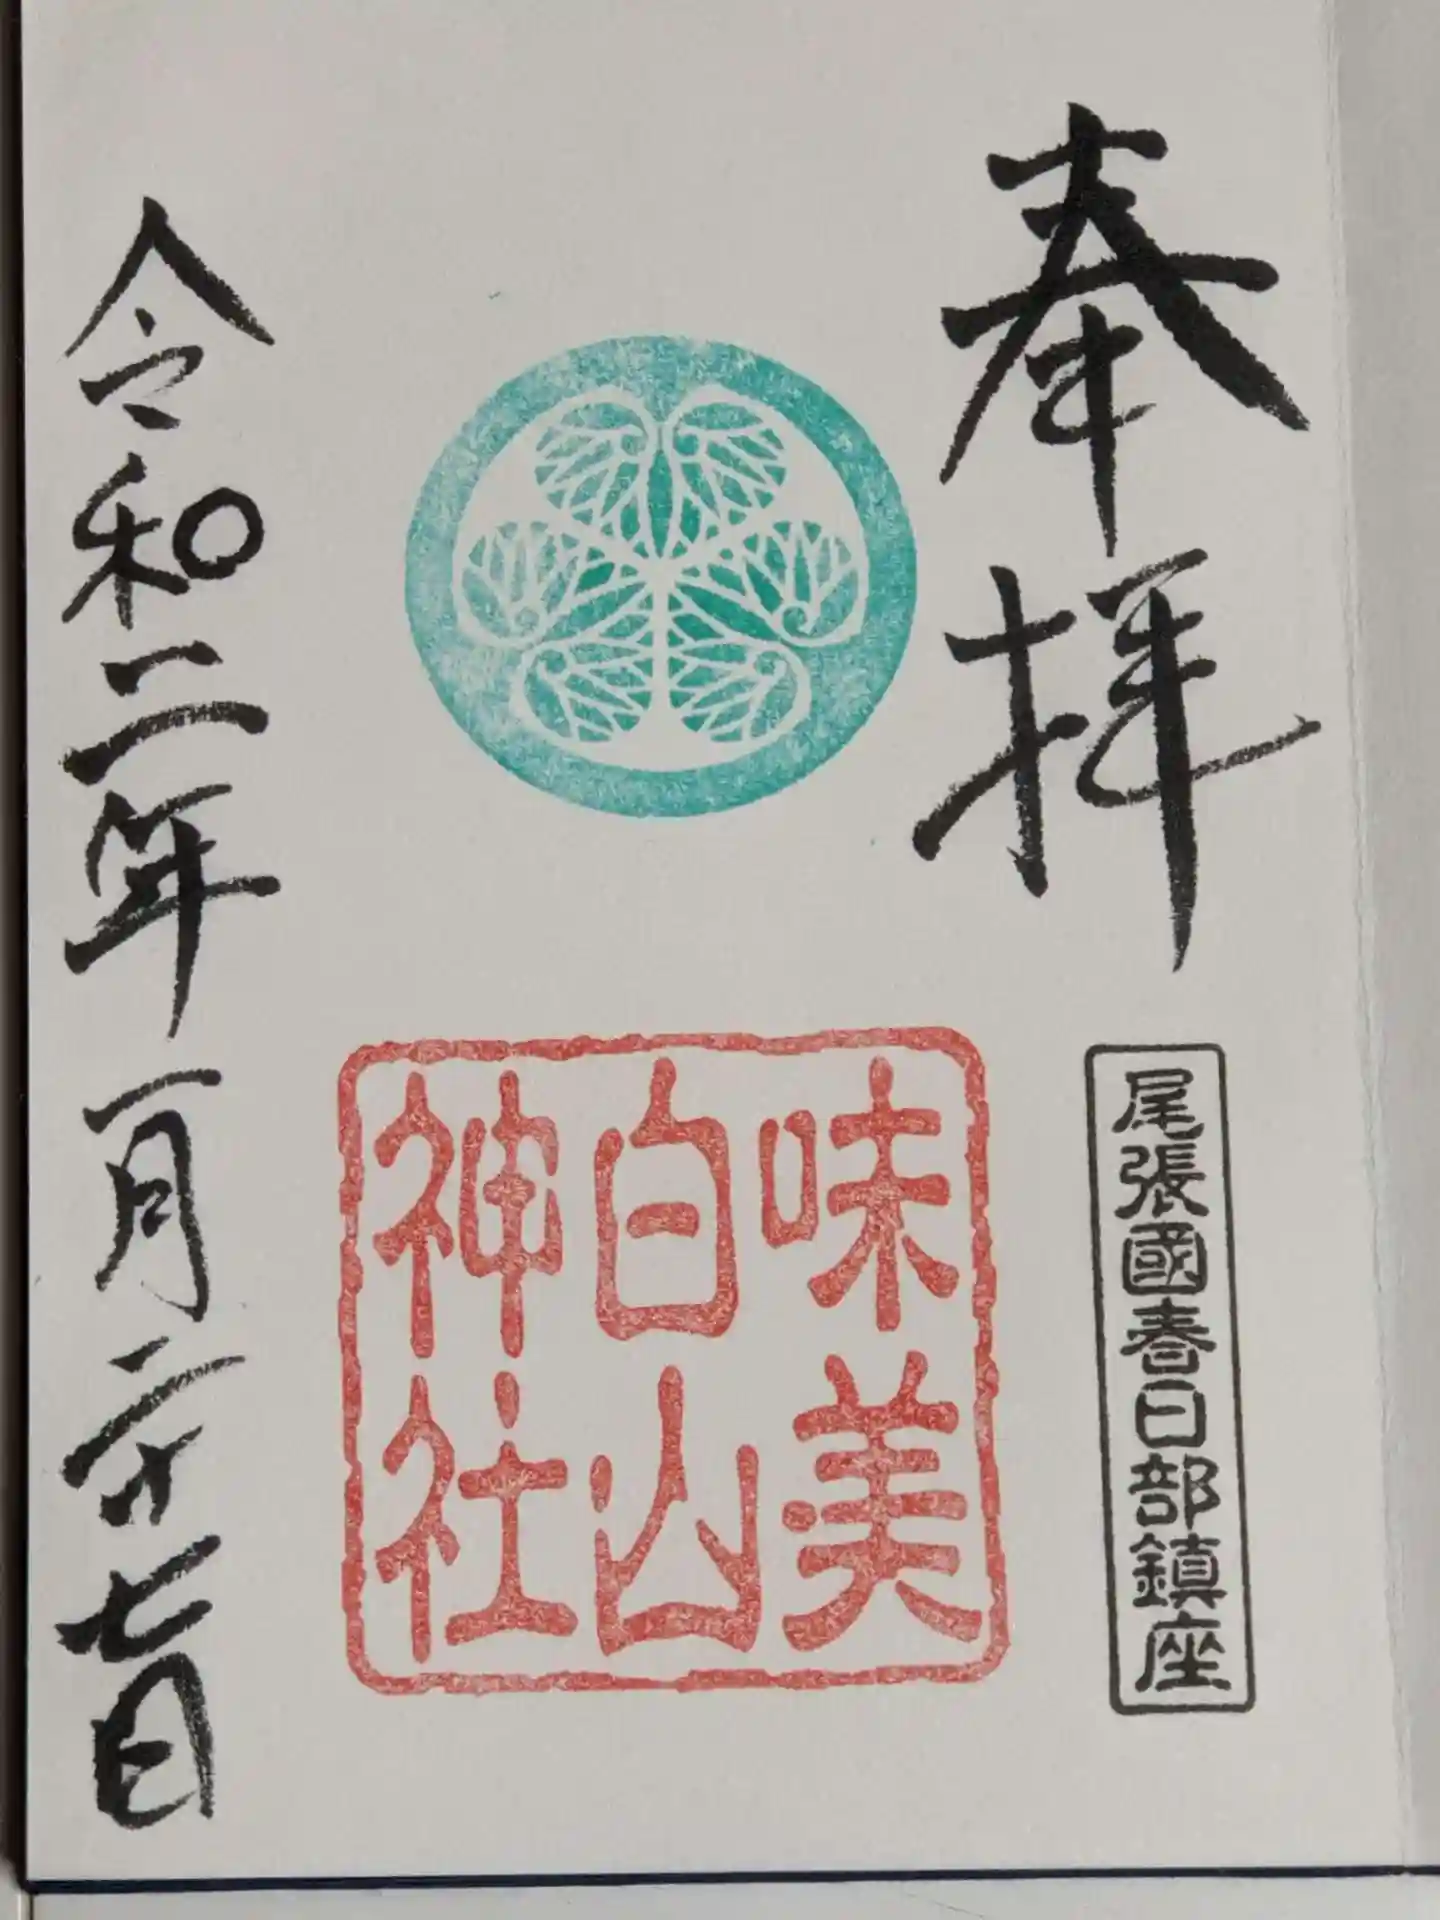 奉拝
尾張國春日部鎮座
味美
白山
神社
令和二年一月二十七日